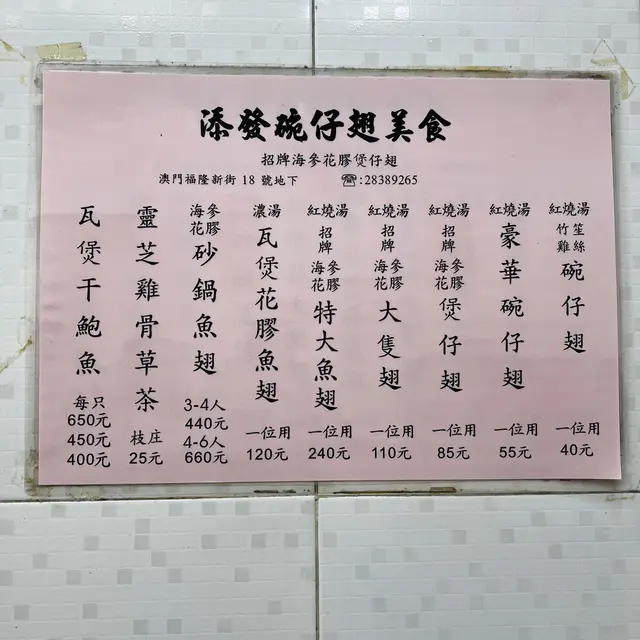 添發碗仔翅美食
招牌海參花膠煲仔翅
澳門福隆新街 18 號地下 ☎:28389265
紅燒湯
竹笙雞絲碗仔翅
一位用
40元
紅燒湯
豪華碗仔翅
一位用
55元
紅燒湯
招牌海參花膠煲仔翅
一位用
85元
紅燒湯
招牌海參花膠大隻翅
一位用
110元
紅燒湯
招牌海參花膠特大魚翅
一位用
240元
濃湯
瓦煲花膠魚翅
一位用
120元
海參花膠砂鍋魚翅
3-4人
440元
4-6人
660元
靈芝雞骨草茶
枝庄
25元
瓦煲干鮑魚
每只
650元
450元
400元